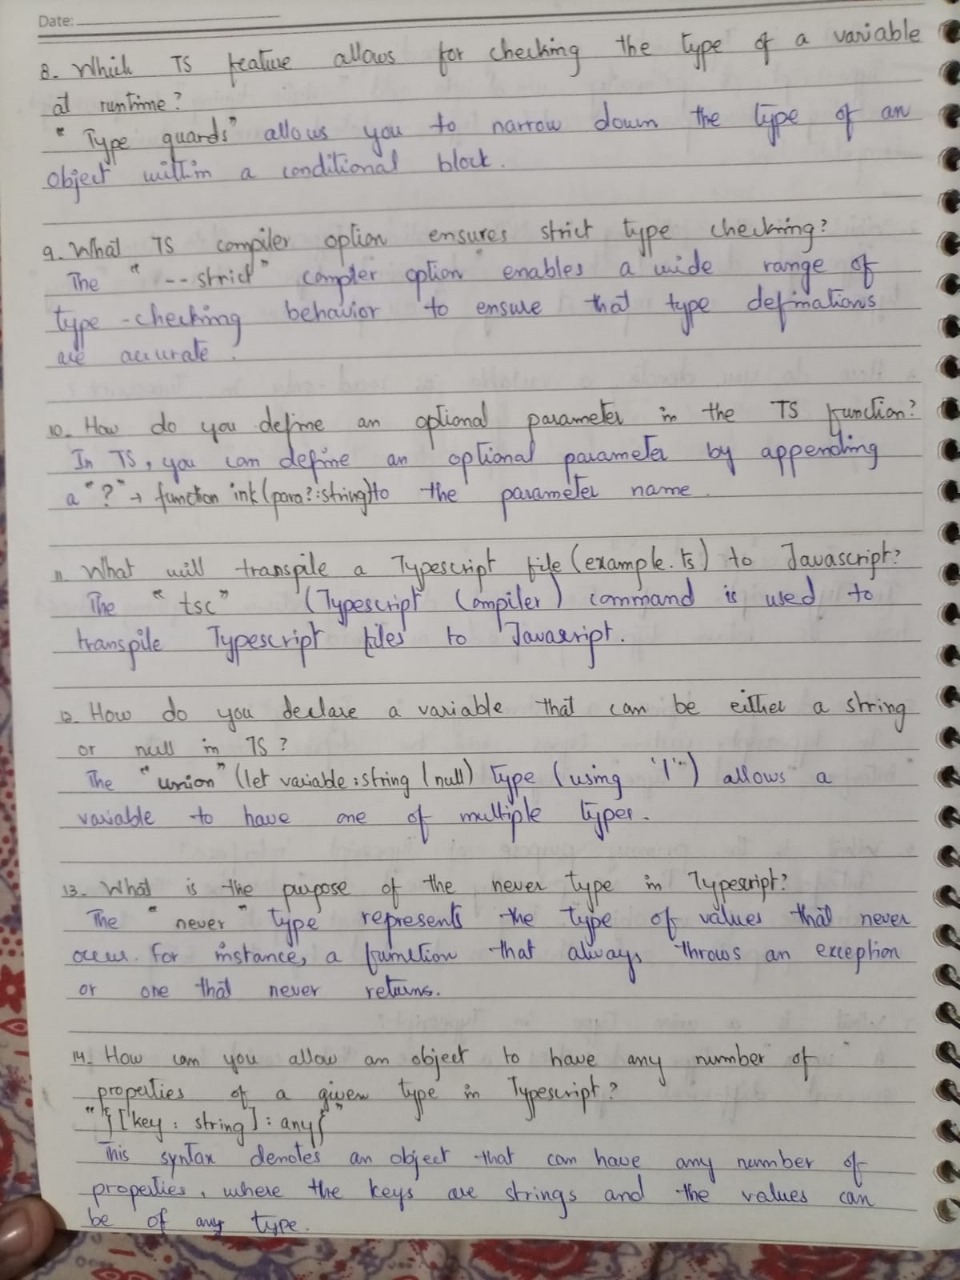 Date:
8. Which TS feature allows for checking the type of a variable
at runtime?
"Type guards" allows you to narrow down the type of an
object within a conditional block.
9. What TS compiler option ensures strict type checking?
The "--strict" compiler option enables a wide range of
type-checking behavior to ensure that type definations
are accurate.
10. How do you define an optional parameter in the TS function?
In TS, you can define an optional parameter by appending
a "?" → function ink(para?:string) to the parameter name.
11. What will transpile a Typescript file (example.ts) to Javascript?
The "tsc" (Typescript Compiler) command is used to
transpile Typescript files to Javascript.
12. How do you declare a variable that can be either a string
or null in TS?
The "union" (let variable:string | null) type (using '|') allows a
variable to have one of multiple types.
13. What is the purpose of the never type in Typescript?
The "never" type represents the type of values that never
occur. For instance, a function that always throws an exception
or one that never returns.
14. How can you allow an object to have any number of
properties of a given type in Typescript?
"{[key: string]: any}"
This syntax denotes an object that can have any number of
properties, where the keys are strings and the values can
be of any type.